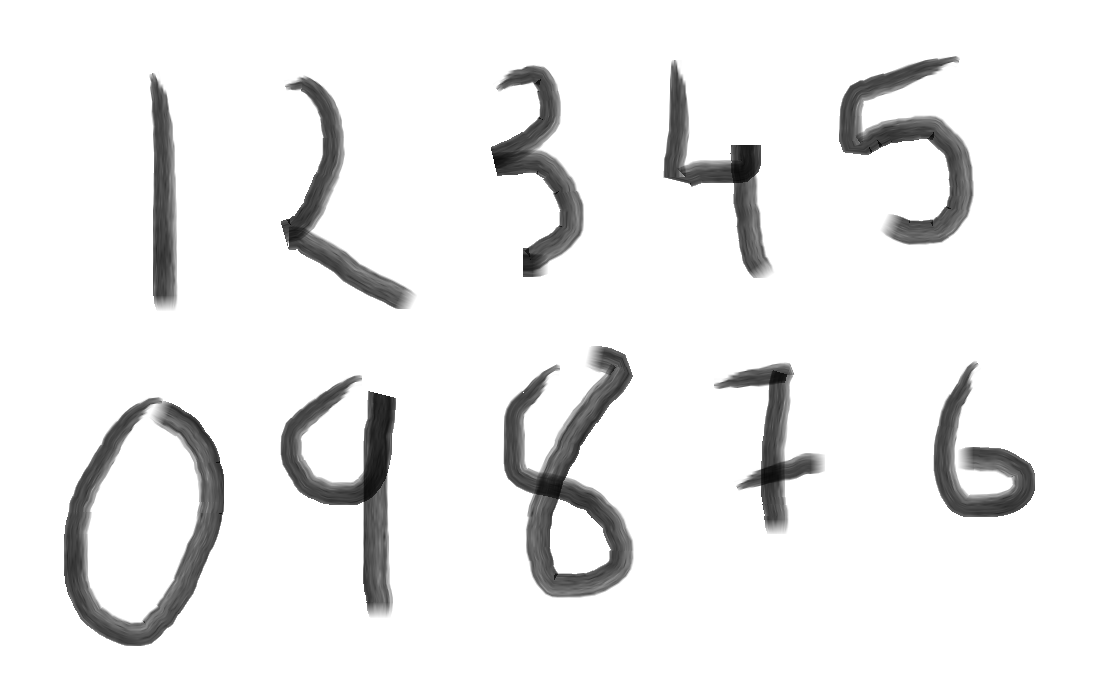 1 2 3 4 5
0 9 8 7 6